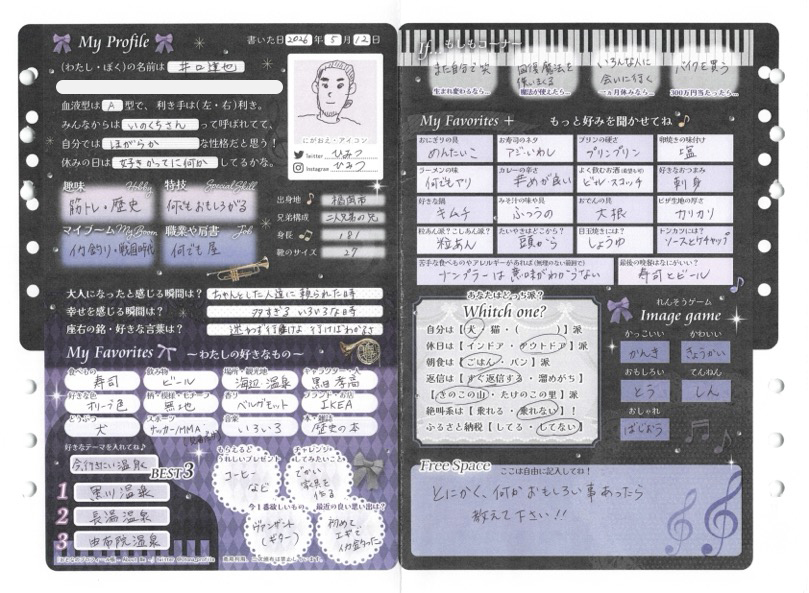 My Profile
書いた日 2026 年 5 月 12 日
(わたし・ぼく)の名前は 井口達也
血液型は A 型で、利き手は(左・右)利き。
みんなからは いのくちさん って呼ばれてて、
自分では ほがらか な性格だと思う!
休みの日は 好きかってに何か してるかな。
にがおえ・アイコン
Twitter ひみつ
Instagram ひみつ
趣味 Hobby
筋トレ・歴史
特技 Special Skill
何でもおもしろがる
マイブーム My Boom
イカ釣り・戦国時代
職業や肩書 Job
何でも屋
出身地 福岡市
兄弟構成 二人兄弟の兄
身長 181
靴のサイズ 27
大人になったと感じる瞬間は? ちゃんとした人達に頼られた時
幸せを感じる瞬間は? 多すぎる いろいろな日
座右の銘・好きな言葉は? 迷わず行けよ 行けばわかるさ
My Favorites ~わたしの好きなもの~
食べもの 寿司
飲み物 ビール
場所・観光地 海辺 温泉
キャラクター・人 黒田孝高
好きな色 オリーブ色
柄・模様・モチーフ 無地
香り ベルガモット
ブランド・お店 IKEA
どうぶつ 犬
スポーツ サッカー/MMA
音楽 いろいろ
本・雑誌 歴史の本
好きなテーマを入れてね♪
今行きたい温泉 BEST3
1 黒川温泉
2 長湯温泉
3 由布院温泉
もらえると うれしいプレゼント
コーヒー
など
チャレンジ してみたいこと
でかい
家具を
作る
今1番欲しいもの
ヴァンザント
(ギター)
最近の良い思い出は?
初めて
エギで
イカ釣った
If... もしもコーナー
また自分で笑
生まれ変わるなら…
回復魔法を
使いまくる
魔法が使えたら…
いろんな人に
会いに行く
1ヵ月休みなら…
バイクを買う
100万円当たったら…
My Favorites + もっと好みを聞かせてね
おにぎりの具 めんたいこ
お寿司のネタ アジ・いわし
プリンの硬さ プリンプリン
卵焼きの味付け 塩
ラーメンの味 何でもアリ
カレーの辛さ 辛めが良い
よく飲むお酒 ビール・スコッチ
好きなおつまみ 刺身
好きな鍋 キムチ
みそ汁の味や具 ふつうの
おでんの具 大根
ピザ生地の厚さ カリカリ
粒あん派?こしあん派? 粒あん
たいやきはどこから? 頭から
目玉焼きには? しょうゆ
トンカツには? ソースとケチャップ
苦手な食べものやアレルギーがあれば
ナンプラーは 意味がわからない
最後の晩餐はなにがいい?
寿司とビール
あなたはどっち派?
Whitch one?
自分は【犬・猫・( )】派
休日は【インドア・アウトドア】派
朝食は【ごはん・パン】派
返信は【すぐ返信する・溜めがち】
【きのこの山・たけのこの里】派
絶叫系は【乗れる・乗れない】!
ふるさと納税【してる・してない】
れんそうゲーム
Image game
かっこいい かわいい
がんき きょうかい
おもしろい てんねん
とう しん
おしゃれ
はじおう
Free Space ここは自由に記入してね!
とにかく、何かおもしろい事あったら
教えて下さい!!